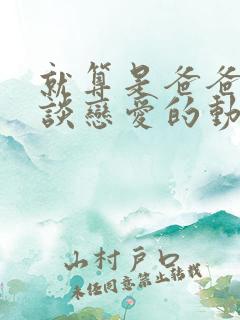 就算是爸爸
談戀愛的動
山村戶口
未經同意禁止轉載